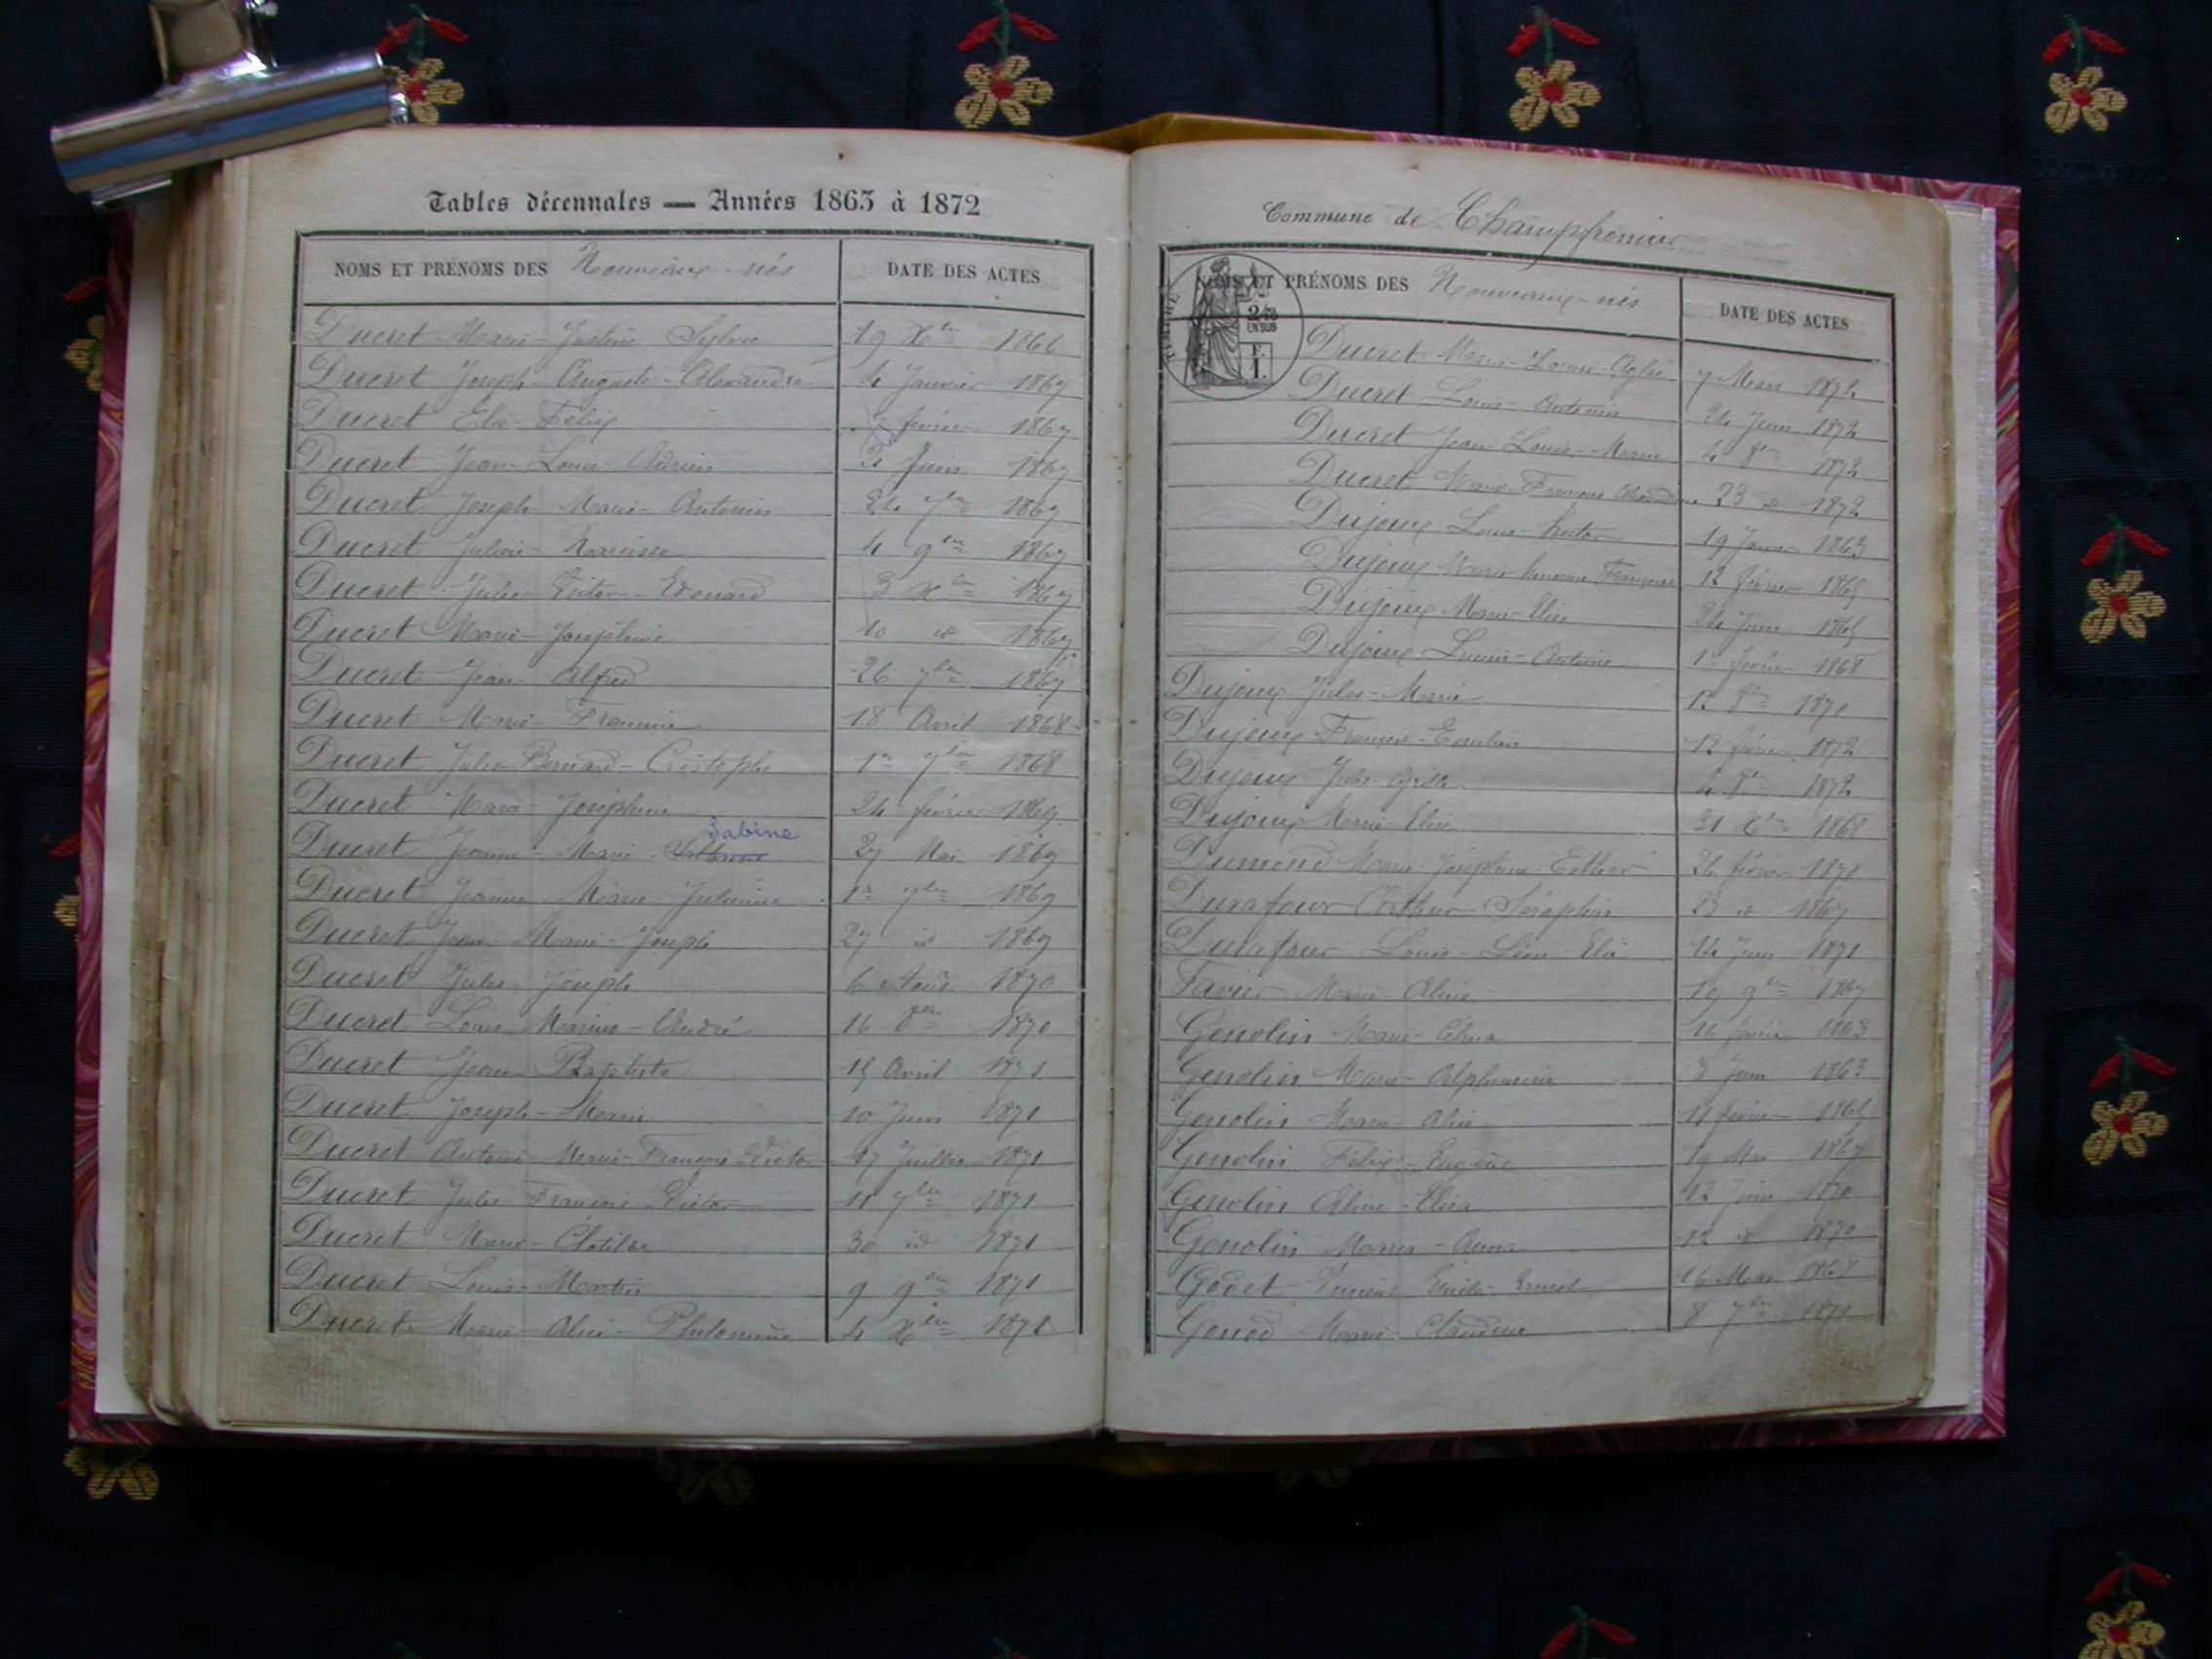 Tables décennales — Années 1863 à 1872
NOMS ET PRÉNOMS DES Nouveaux-nés
DATE DES ACTES
Ducret Marie-Justine Sylvie 19 Xbre 1866
Ducret Joseph-Auguste-Alexandre 4 Janvier 1867
Ducret Elie-Félix février 1867
Ducret Jean-Louis-Adrien Juin 1867
Ducret Joseph-Marie-Antonin 24 7bre 1867
Ducret Narcisse 4 9bre 1867
Ducret Jules-Victor-Edouard 3 Xbre 1867
Ducret Marie-Joséphine 10 id 1867
Ducret Jean-Alfred 26 7bre 1867
Ducret Marie-Francine 18 Avril 1868
Ducret Jules-Bernard-Cristophe 1er 7bre 1868
Ducret Marie-Joséphine 24 février 1869
Sabine
Ducret Jeanne-Marie 27 Mai 1869
Ducret Jeanne-Marie-Julienne 1er 7bre 1869
Ducret Jean-Marie-Joseph 27 id 1869
Ducret Jules-Joseph 6 Août 1870
Ducret Louis-Marius-André 16 8bre 1870
Ducret Jean-Baptiste 15 Avril 1871
Ducret Joseph-Marie 10 Juin 1871
Ducret Antoine-Marie-François-Victor 17 Juillet 1871
Ducret Jules-François-Victor 11 7bre 1871
Ducret Marie-Clotilde 30 id 1871
Ducret Louis-Martin 9 9bre 1871
Ducret Marie-Alice-Philomène 4 Xbre 1871
Commune de Champfromier
NOMS ET PRÉNOMS DES Nouveaux-nés
DATE DES ACTES
TIMBRE
2/10
EN SUS
F.
1.
Ducret Marie-Louise-Aglaé 7 Mars 1872
Ducret Louis-Antonin 24 Juin 1872
Ducret Jean-Louis-Marie 4 8bre 1872
Ducret Marie-Françoise 23 id 1872
Dujoux Louis-Hector 19 Janvier 1863
Dujoux Marie Françoise 12 février 1865
Dujoux Marie-Elise 24 Juin 1865
Dujoux Antoine 1er février 1868
Dujoux Jules-Marie 12 8bre 1870
Dujoux François 12 février 1872
Dujoux Jules 4 8bre 1872
Dujoux Marie-Elise 31 Xbre 1868
Dumond Marie-Joséphine-Esther 24 février 1871
Durafour Arthur-Séraphin 23 id 1867
Durafour Louis-Léon-Elie 14 Juin 1871
Favier Marie-Aline 19 9bre 1867
Genolin Marie 16 février 1863
Genolin Marie-Alphonsine 3 Juin 1863
Genolin Marie 11 février 1865
Genolin Félix-Eugène 19 Mai 1867
Genolin Aline-Elisa 12 Juin 1870
Genolin Maria-Anna 12 id 1870
Godet Emile-Ernest 16 Mars 1868
Genod Marie-Claudine 8 7bre 1871